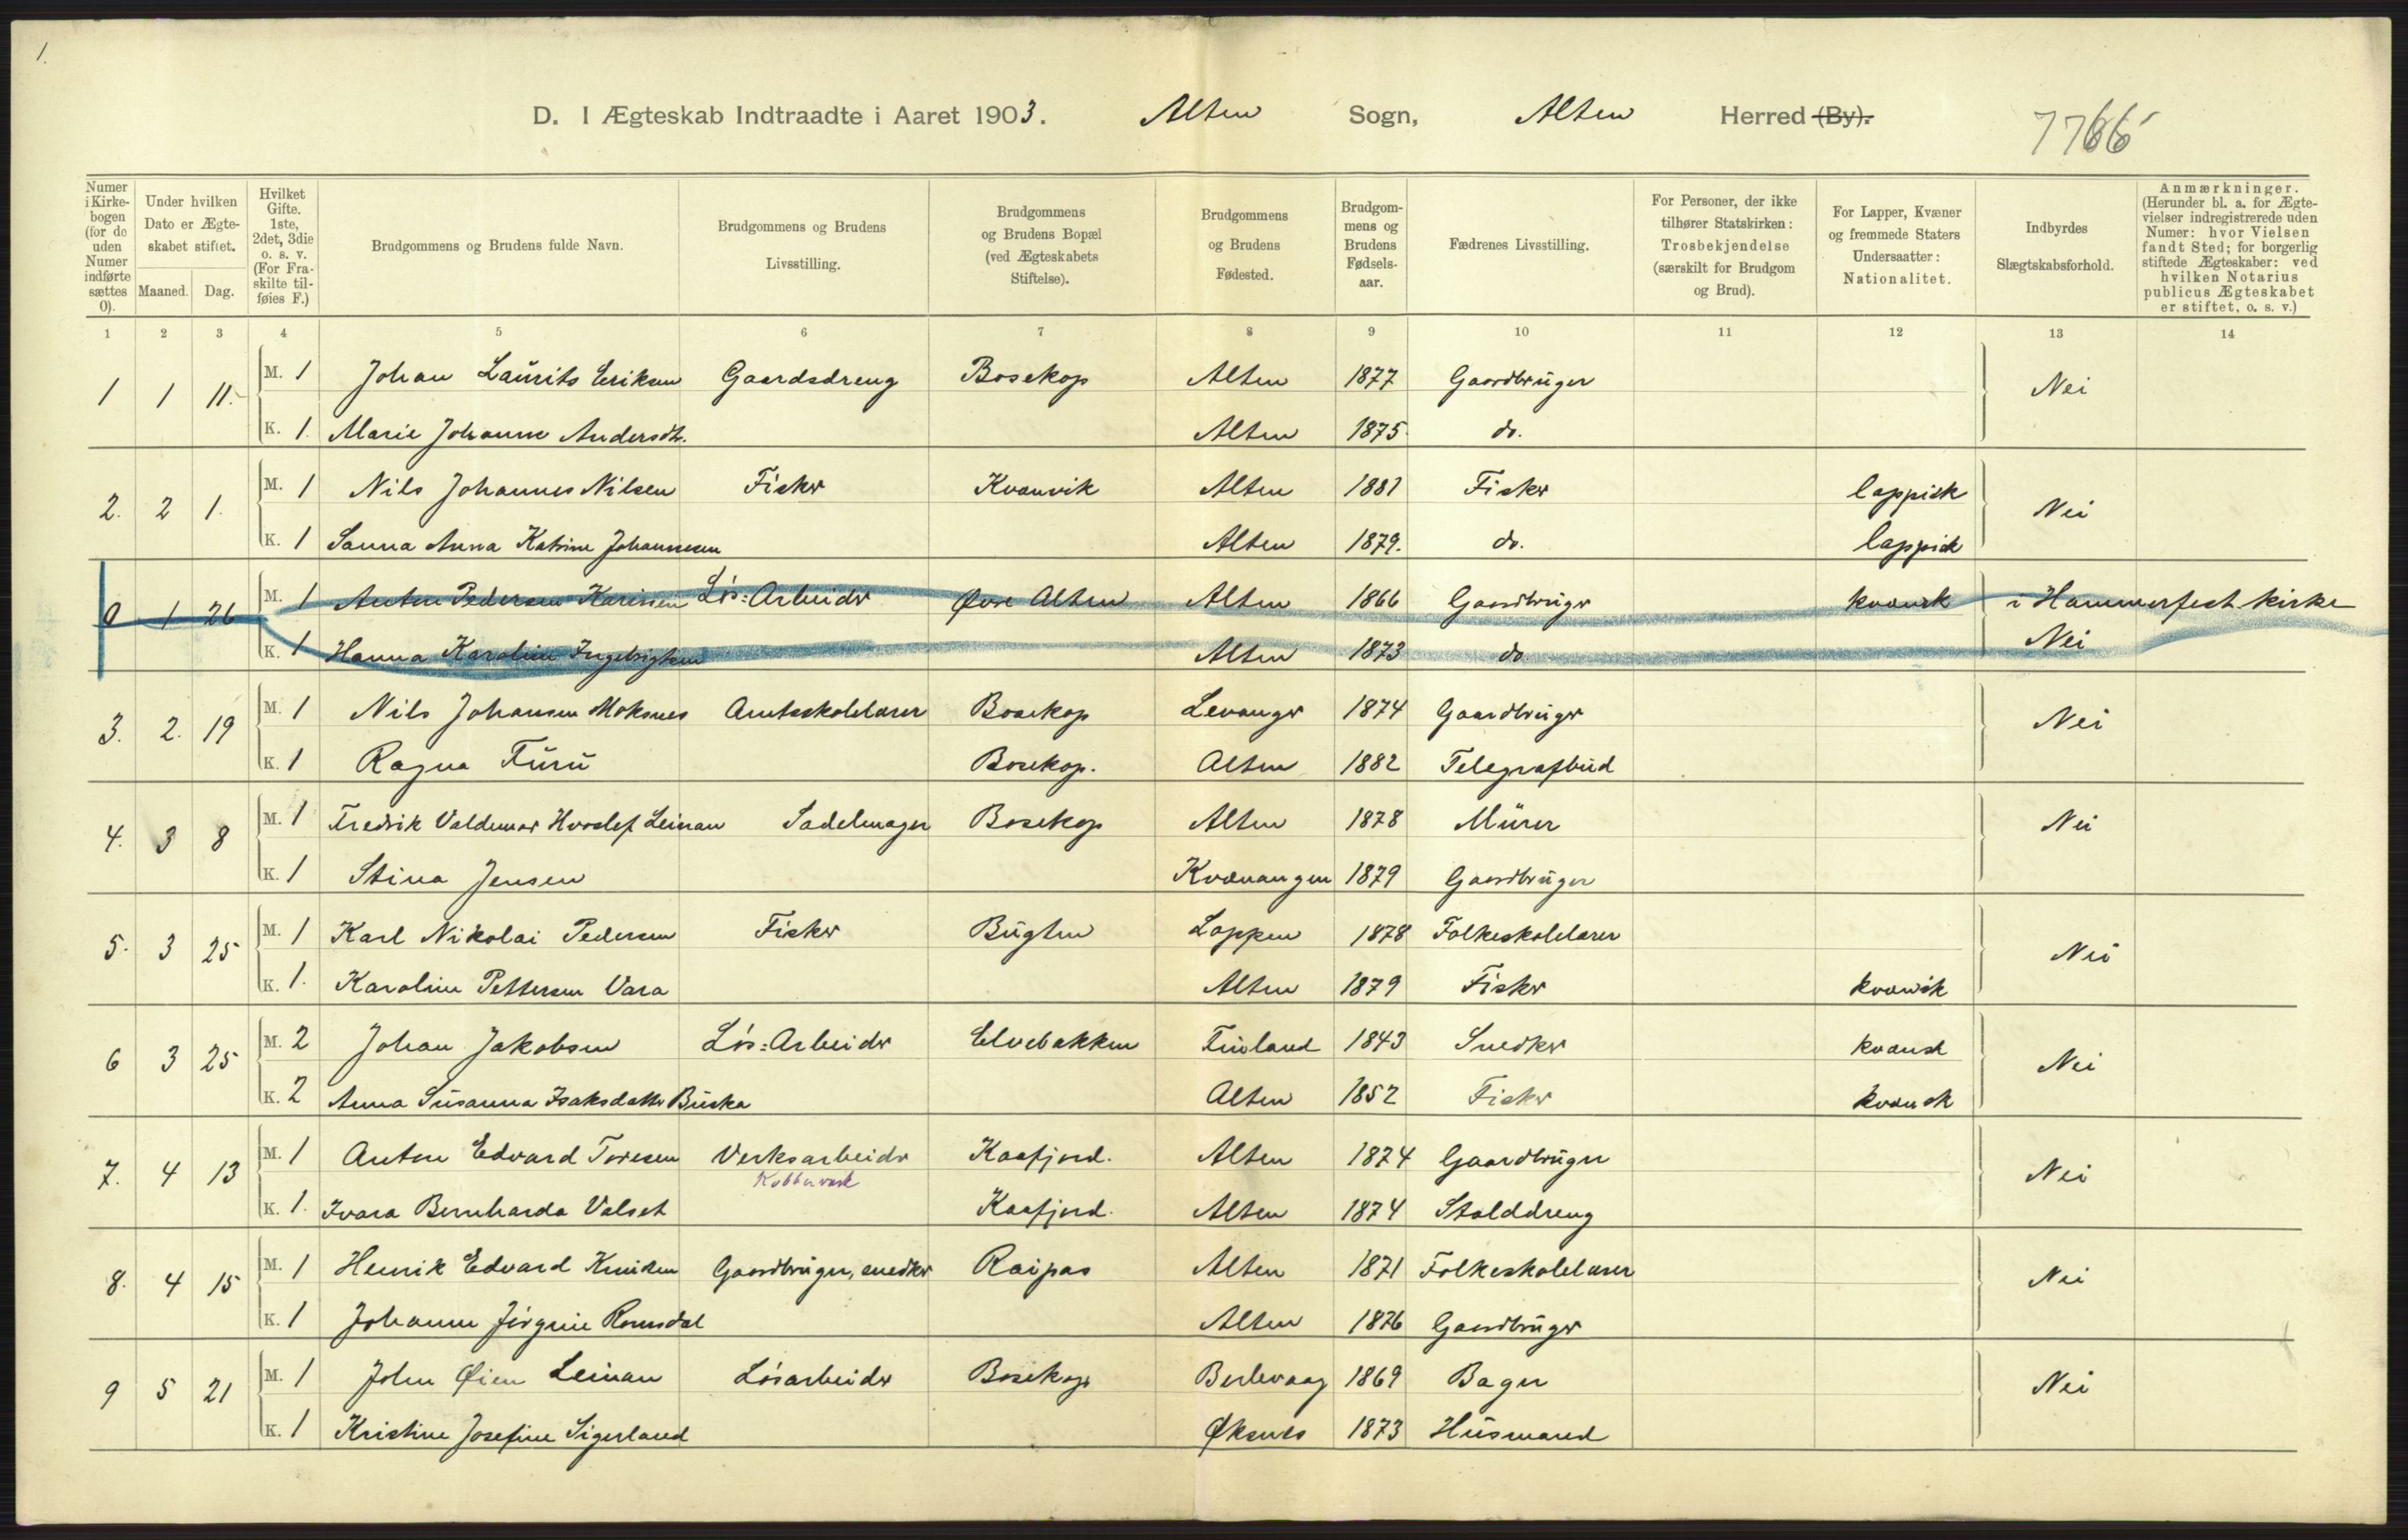 1.
D. I Ægteskab Indtraadte i Aaret 1903. Alten Sogn, Alten Herred (By).
7766
Numer i Kirkebogen (for de uden Numer indførte sættes 0).
Under hvilken Dato er Ægteskabet stiftet.
Maaned. Dag.
Hvilket Gifte. 1ste, 2det, 3die o. s. v. (For Fraskilte tilføies F.)
Brudgommens og Brudens fulde Navn.
Brudgommens og Brudens Livsstilling.
Brudgommens og Brudens Bopæl (ved Ægteskabets Stiftelse).
Brudgommens og Brudens Fødested.
Brudgommens og Brudens Fødselsaar.
Fædrenes Livsstilling.
For Personer, der ikke tilhører Statskirken: Trosbekjendelse (særskilt for Brudgom og Brud).
For Lapper, Kvæner og fremmede Staters Undersaatter: Nationalitet.
Indbyrdes Slægtskabsforhold.
Anmærkninger. (Herunder bl. a. for Ægtevielser indregistrerede uden Numer: hvor Vielsen fandt Sted; for borgerlig stiftede Ægteskaber: ved hvilken Notarius publicus Ægteskabet er stiftet, o. s. v.)
1 2 3 4 5 6 7 8 9 10 11 12 13 14
1 1 11. M. 1 Johan Laurits Eriksen Gaardsdreng Bosekop Alten 1877 Gaardbruger Nei
K. 1 Marie Johanne Andersdtr. Alten 1875 do.
2. 2 1. M. 1 Nils Johannes Nilsen Fisker Kvanvik Alten 1881 Fisker lappisk Nei
K. 1 Sanna Anna Katrine Johannesen Alten 1879. do. lappisk
0 1 26 M. 1 Anton Pedersen Karinen Løs=Arbeider Øvre Alten Alten 1866 Gaardbruger kvænsk i Hammerfest kirke
K. 1 Hanna Karoline Ingebrigtsen Alten 1873 do Nei
3. 2. 19 M. 1 Nils Johansen Moksnes Amtsskolelærer Bosekop Levanger 1874 Gaardbruger Nei
K. 1 Ragna Furu Bosekop. Alten 1882 Telegrafbud
4. 3 8 M. 1 Fredrik Valdemar Hvoslef Leinan Sadelmager Bosekop Alten 1878 Murer Nei
K. 1 Stina Jensen Kvænangen 1879 Gaardbruger
5. 3 25 M. 1 Karl Nikolai Pedersen Fisker Bugten Loppen 1878 Folkeskolelærer Nei
K. 1. Karoline Pettersen Vara Alten 1879 Fisker kvænsk
6 3 25 M. 2 Johan Jakobsen Løs=Arbeider Elvebakken Finland 1843 Snedker kvænsk Nei
K. 2 Anna Susanna Isaksdatter Buska Alten 1852 Fisker kvænsk
7. 4 13 M. 1 Anton Edvard Toresen Verksarbeider Kaafjord. Alten 1874 Gaardbruger Nei
Kobberverk
K. 1. Ivara Bernharda Valset Kaafjord. Alten 1874 Stalddreng
8. 4 15 M. 1 Henrik Edvard Gaardbruger, snedker Raipas Alten 1871 Folkeskolelærer Nei
K. 1 Johanne Jørgine Romsdal Alten 1876 Gaardbruger
9 5 21 M. 1 John Øien Leinan Løsarbeider Bosekop Berlevaag 1869 Bager Nei
K. 1 Kristine Josefine Sigerland Øksnes 1873 Husmand